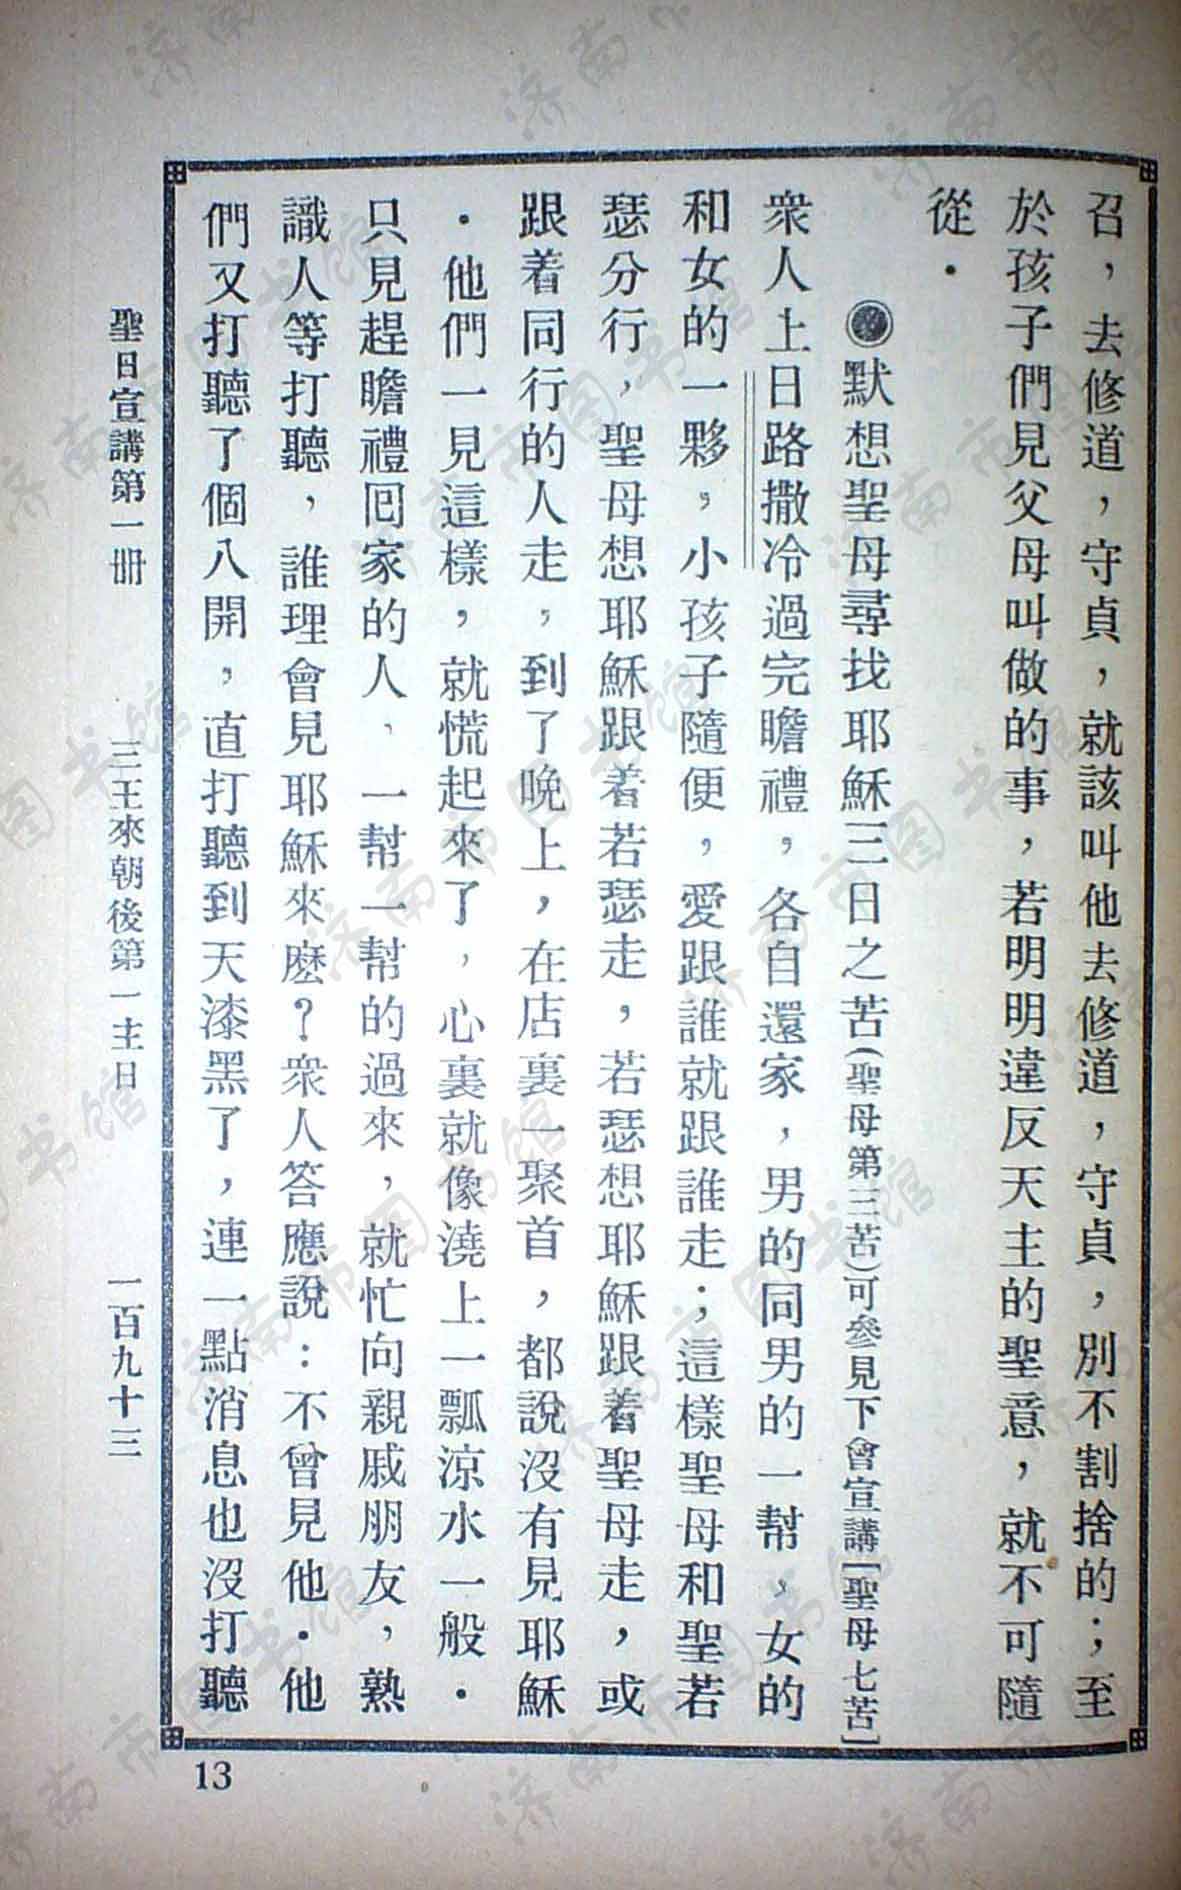 召，去修道，守貞，就該叫他去修道，守貞，別不割捨的；至
於孩子們見父母叫做的事，若明明違反天主的聖意，就不可隨
從．
默想聖母尋找耶穌三日之苦(聖母第三苦)可參見下會宣講[聖母七苦]
衆人上日路撒冷過完瞻禮，各自還家，男的同男的一幫，女的
和女的一夥，小孩子隨便，愛跟誰就跟誰走；這樣聖母和聖若
瑟分行，聖母想耶穌跟着若瑟走，若瑟想耶穌跟着聖母走，或
跟着同行的人走，到了晚上，在店裏一聚首，都說沒有見耶穌
．他們一見這樣，就慌起來了，心裏就像澆上一瓢涼水一般．
只見趕瞻禮囘家的人，一幫一幫的過來，就忙向親戚朋友，熟
識人等打聽，誰理會見耶穌來麽？衆人答應說：不曾見他．他
們又打聽了個八開，直打聽到天漆黑了，連一點消息也沒打聽
聖日宣講第一册　三王來朝後第一主日　一百九十三
13
济南市图书馆